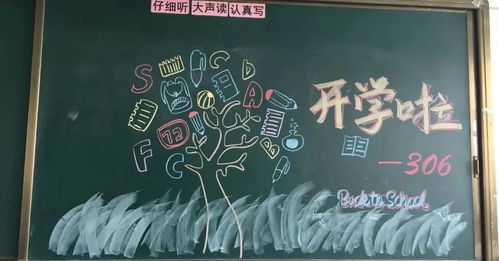 仔细听 大声读 认真写
开学啦
一306
Back to School
S
D
A
F
C
B
12